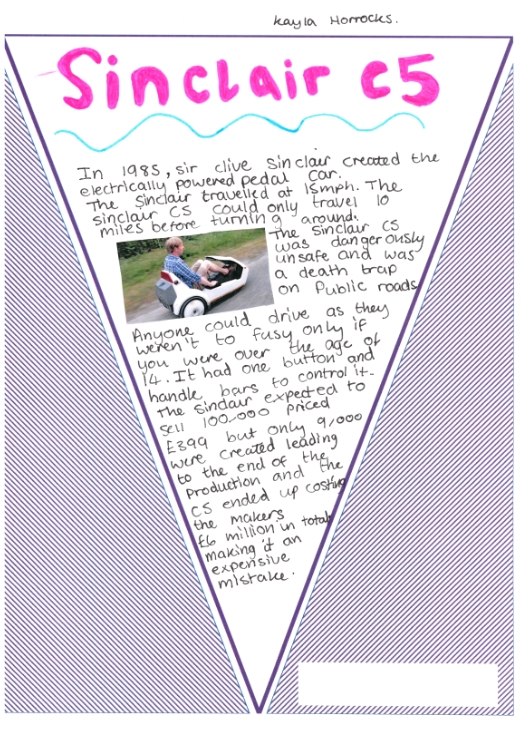 Kayla Horrocks.
Sinclair C5
In 1985, sir clive sinclair created the
electrically powered pedal car.
The Sinclair travelled at 15mph. The
sinclair C5 could only travel 10
miles before turning around.
The Sinclair C5
was dangerously
unsafe and was
a death trap
on Public roads
Anyone could drive as they
weren't to fusy only if
you were over the age of
14. It had one button and
handle bars to control it.
The Sinclair expected to
sell 100,000 priced
£399 but only 9,000
were created leading
to the end of the
production and the
C5 ended up costing
the makers
£6 million in total
making it an
expensive
mistake.